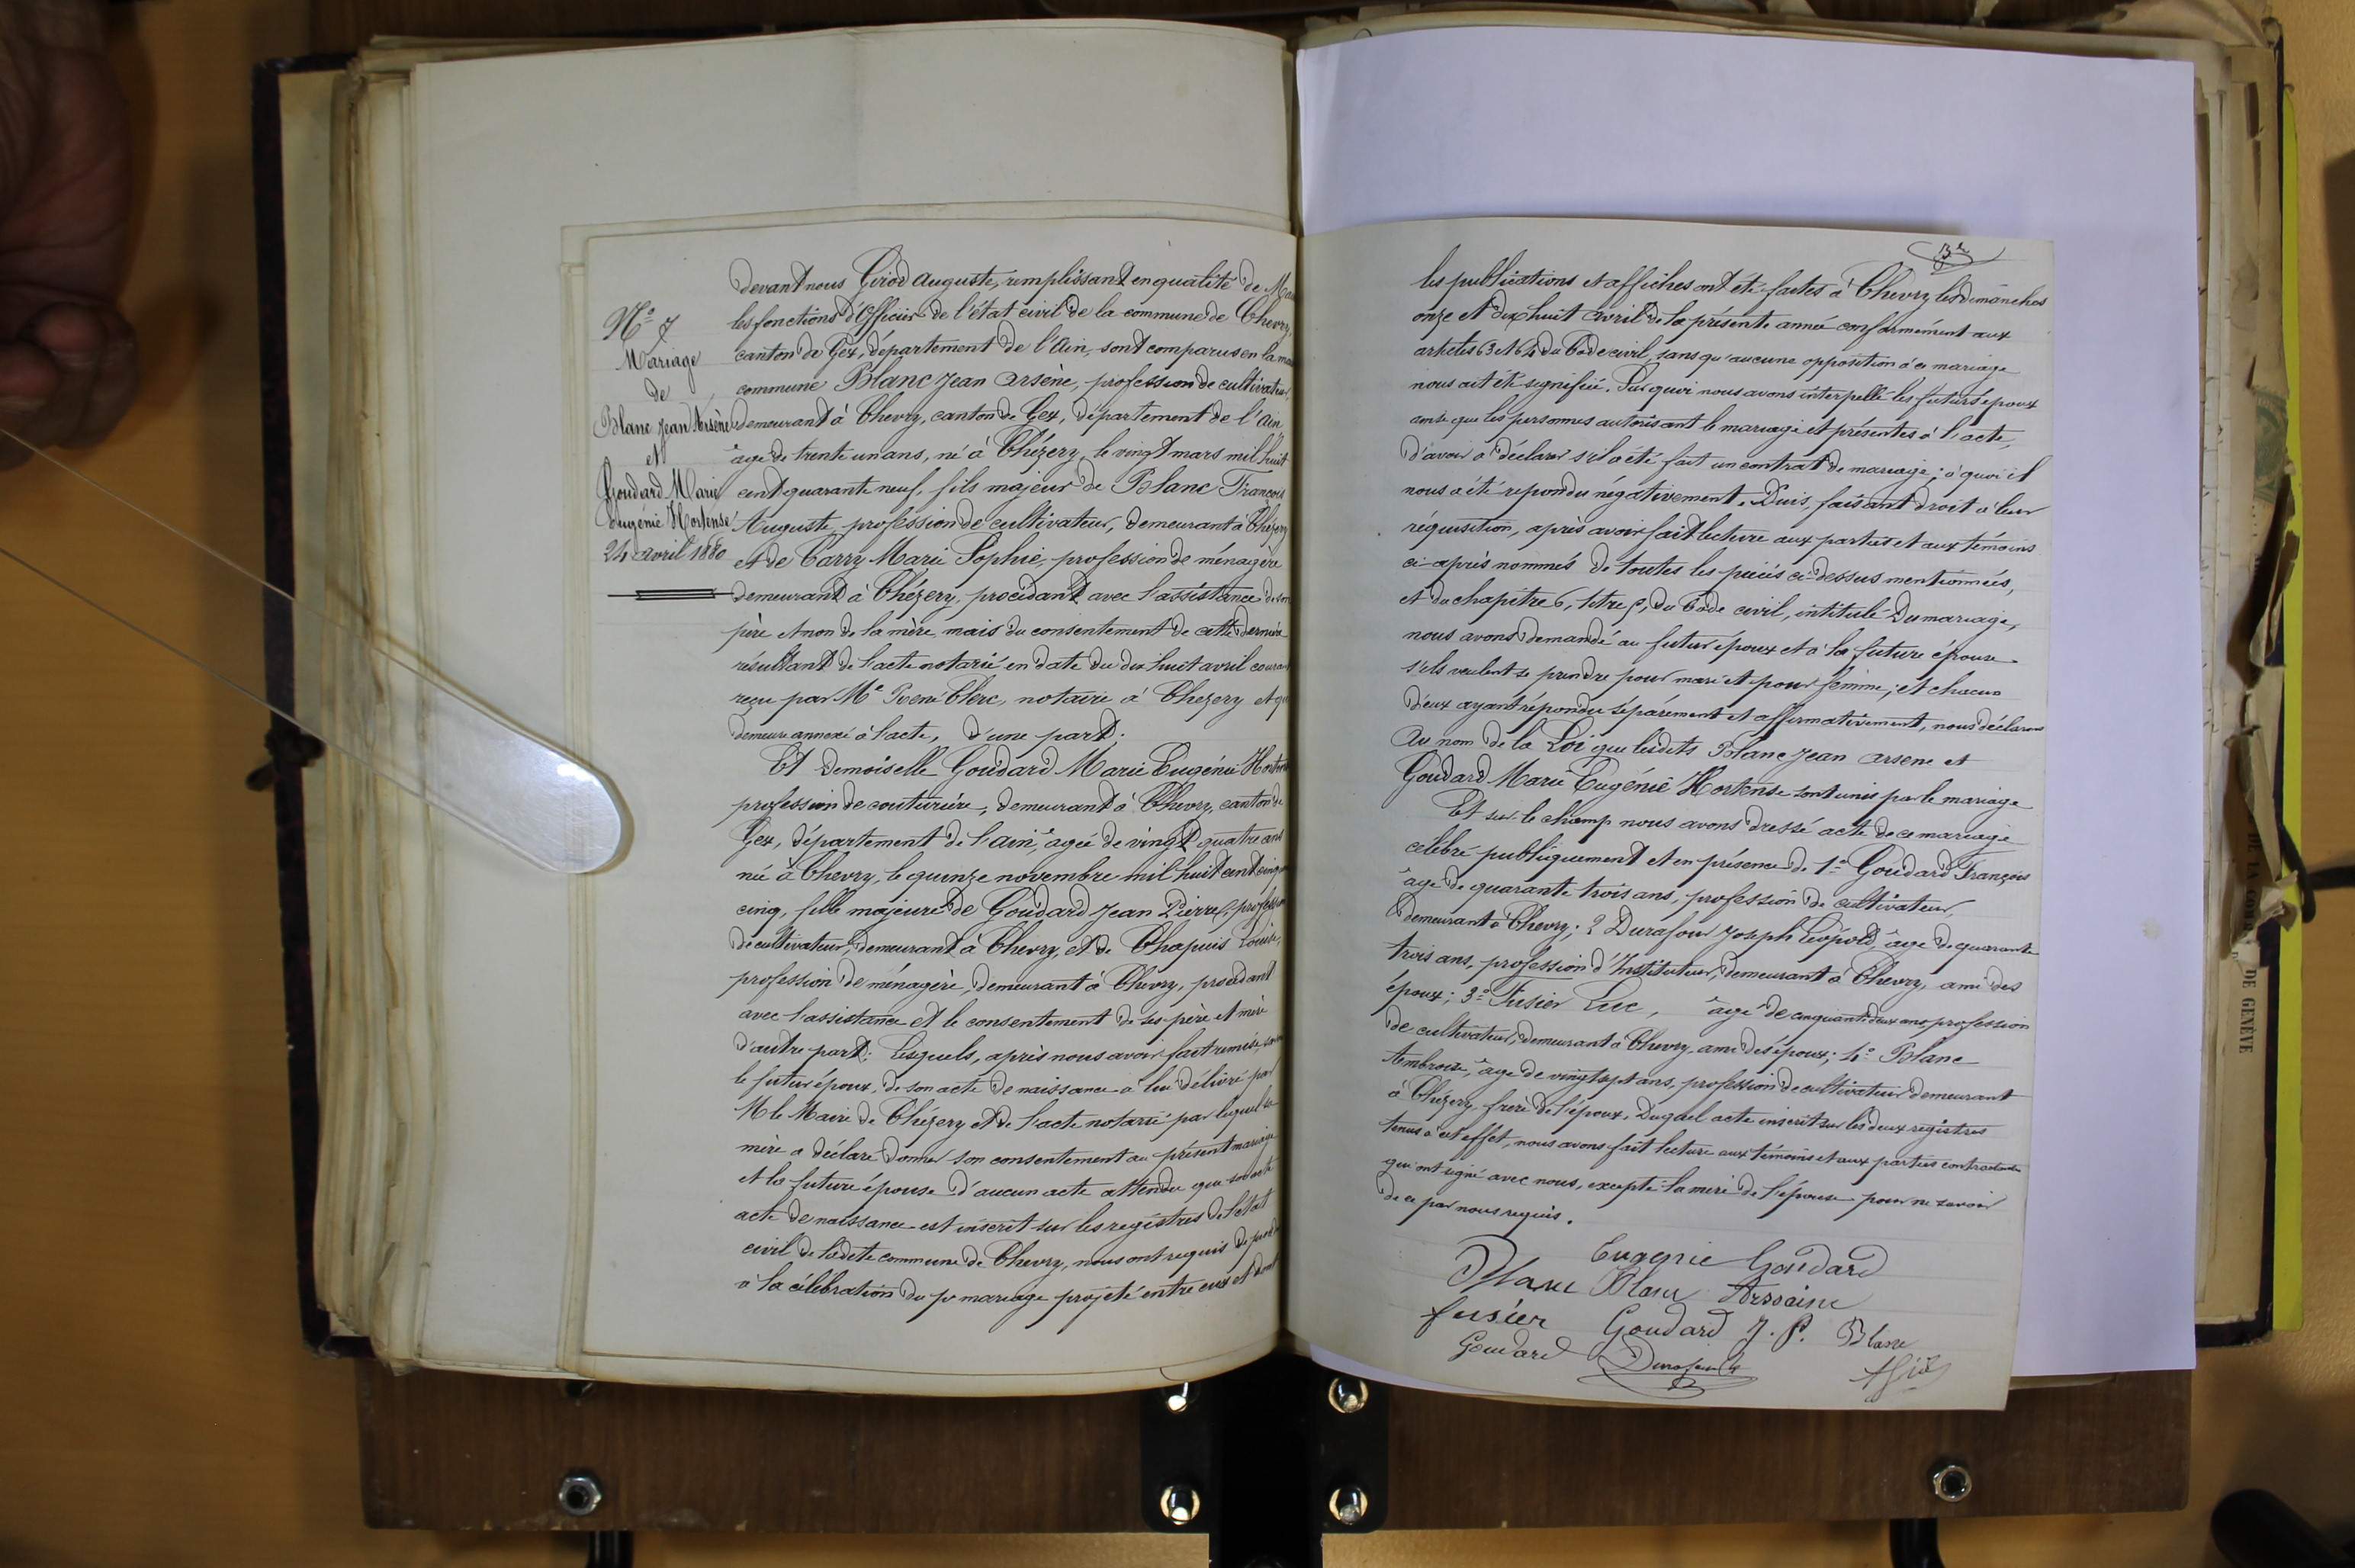 N° 7
Mariage
de
Blanc Jean Arsène
et
Goudard Marie
Eugénie Hortense
24 avril 1880
devant nous Girod Auguste, remplissant en qualité de
les fonctions d'Officier de l'état civil de la commune de Chevry,
canton de Gex, département de l'Ain, sont comparus en la
commune Blanc Jean Arsène, profession de cultivateur,
demeurant à Chevry, canton de Gex, département de l'Ain
âgé de trente un ans, né à Chézery, le vingt mars mil huit
cent quarante neuf, fils majeur de Blanc François
Auguste, profession de cultivateur, demeurant à Chézery
et de Carry Marie Sophie, profession de ménagère
demeurant à Chézery, procédant avec l'assistance de son
père et non de la mère, mais du consentement de cette dernière
résultant de l'acte notarié en date du dix huit avril courant
reçu par Me René Clerc, notaire à Chézery et
demeure annexé à l'acte, d'une part.
Et Demoiselle Goudard Marie Eugénie
profession de couturière, demeurant à Chevry, canton de
Gex, département de l'Ain, âgée de vingt quatre ans
née à Chevry, le quinze novembre mil huit cent
cinq, fille majeure de Goudard Jean Pierre, profession
de cultivateur, demeurant à Chevry, et de Chapuis Louise,
profession de ménagère, demeurant à Chevry, procédant
avec l'assistance et le consentement de ses père et mère
d'autre part; Lesquels, après nous avoir fait remise,
le futur époux, de son acte de naissance à lui délivré par
M le Maire de Chézery et de l'acte notarié par lequel sa
mère a déclaré donner son consentement au présent mariage
et la future épouse d'aucun acte attendu que
acte de naissance est inscrit sur les registres de l'état
civil de ladite commune de Chevry, nous ont requis de
à la célébration du pr mariage projeté entre eux et dont
les publications et affiches ont été faites à Chevry les dimanches
onze et dix huit avril de la présente année conformément aux
articles 63 et 64 du Code civil, sans qu'aucune opposition à ce mariage
nous ait été signifiée. Sur quoi nous avons interpellé les futurs époux
ainsi que les personnes autorisant le mariage et présentes à l'acte,
d'avoir à déclarer s'il a été fait un contrat de mariage; à quoi il
nous a été répondu négativement. Puis, faisant droit à leur
réquisition, après avoir fait lecture aux parties et aux témoins
ci-après nommés de toutes les pièces ci-dessus mentionnées,
et du chapitre 6, titre 5, du Code civil, intitulé Du mariage,
nous avons demandé au futur époux et à la future épouse
s'ils veulent se prendre pour mari et pour femme; et chacun
d'eux ayant répondu séparément et affirmativement, nous déclarons
Au nom de la Loi que lesdits Blanc Jean Arsène et
Goudard Marie Eugénie Hortense sont unis par le mariage
Et sur le champ nous avons dressé acte de ce mariage
célébré publiquement et en présence de 1° Goudard François
âgé de quarante trois ans, profession de cultivateur,
demeurant à Chevry; 2 Durafour Joseph Léopold, âgé de quarante
trois ans, profession d'Instituteur, demeurant à Chevry, ami des
époux; 3° Fusier Luc, âgé de cinquante deux ans, profession
de cultivateur, demeurant à Chevry, ami des époux; 4° Blanc
Ambroise, âgé de vingt sept ans, profession de cultivateur demeurant
à Chézery, frère de l'époux. Duquel acte inscrit sur les deux registres
tenus à cet effet, nous avons fait lecture aux témoins et aux parties contractantes
qui ont signé avec nous, excepté la mère de l'épouse pour ne savoir
de ce par nous requis.
Eugenie Goudard
Blanc Blanc Arssaine
fusier Goudard J. P. Blanc
Goudard Durafour
DE GENÈVE